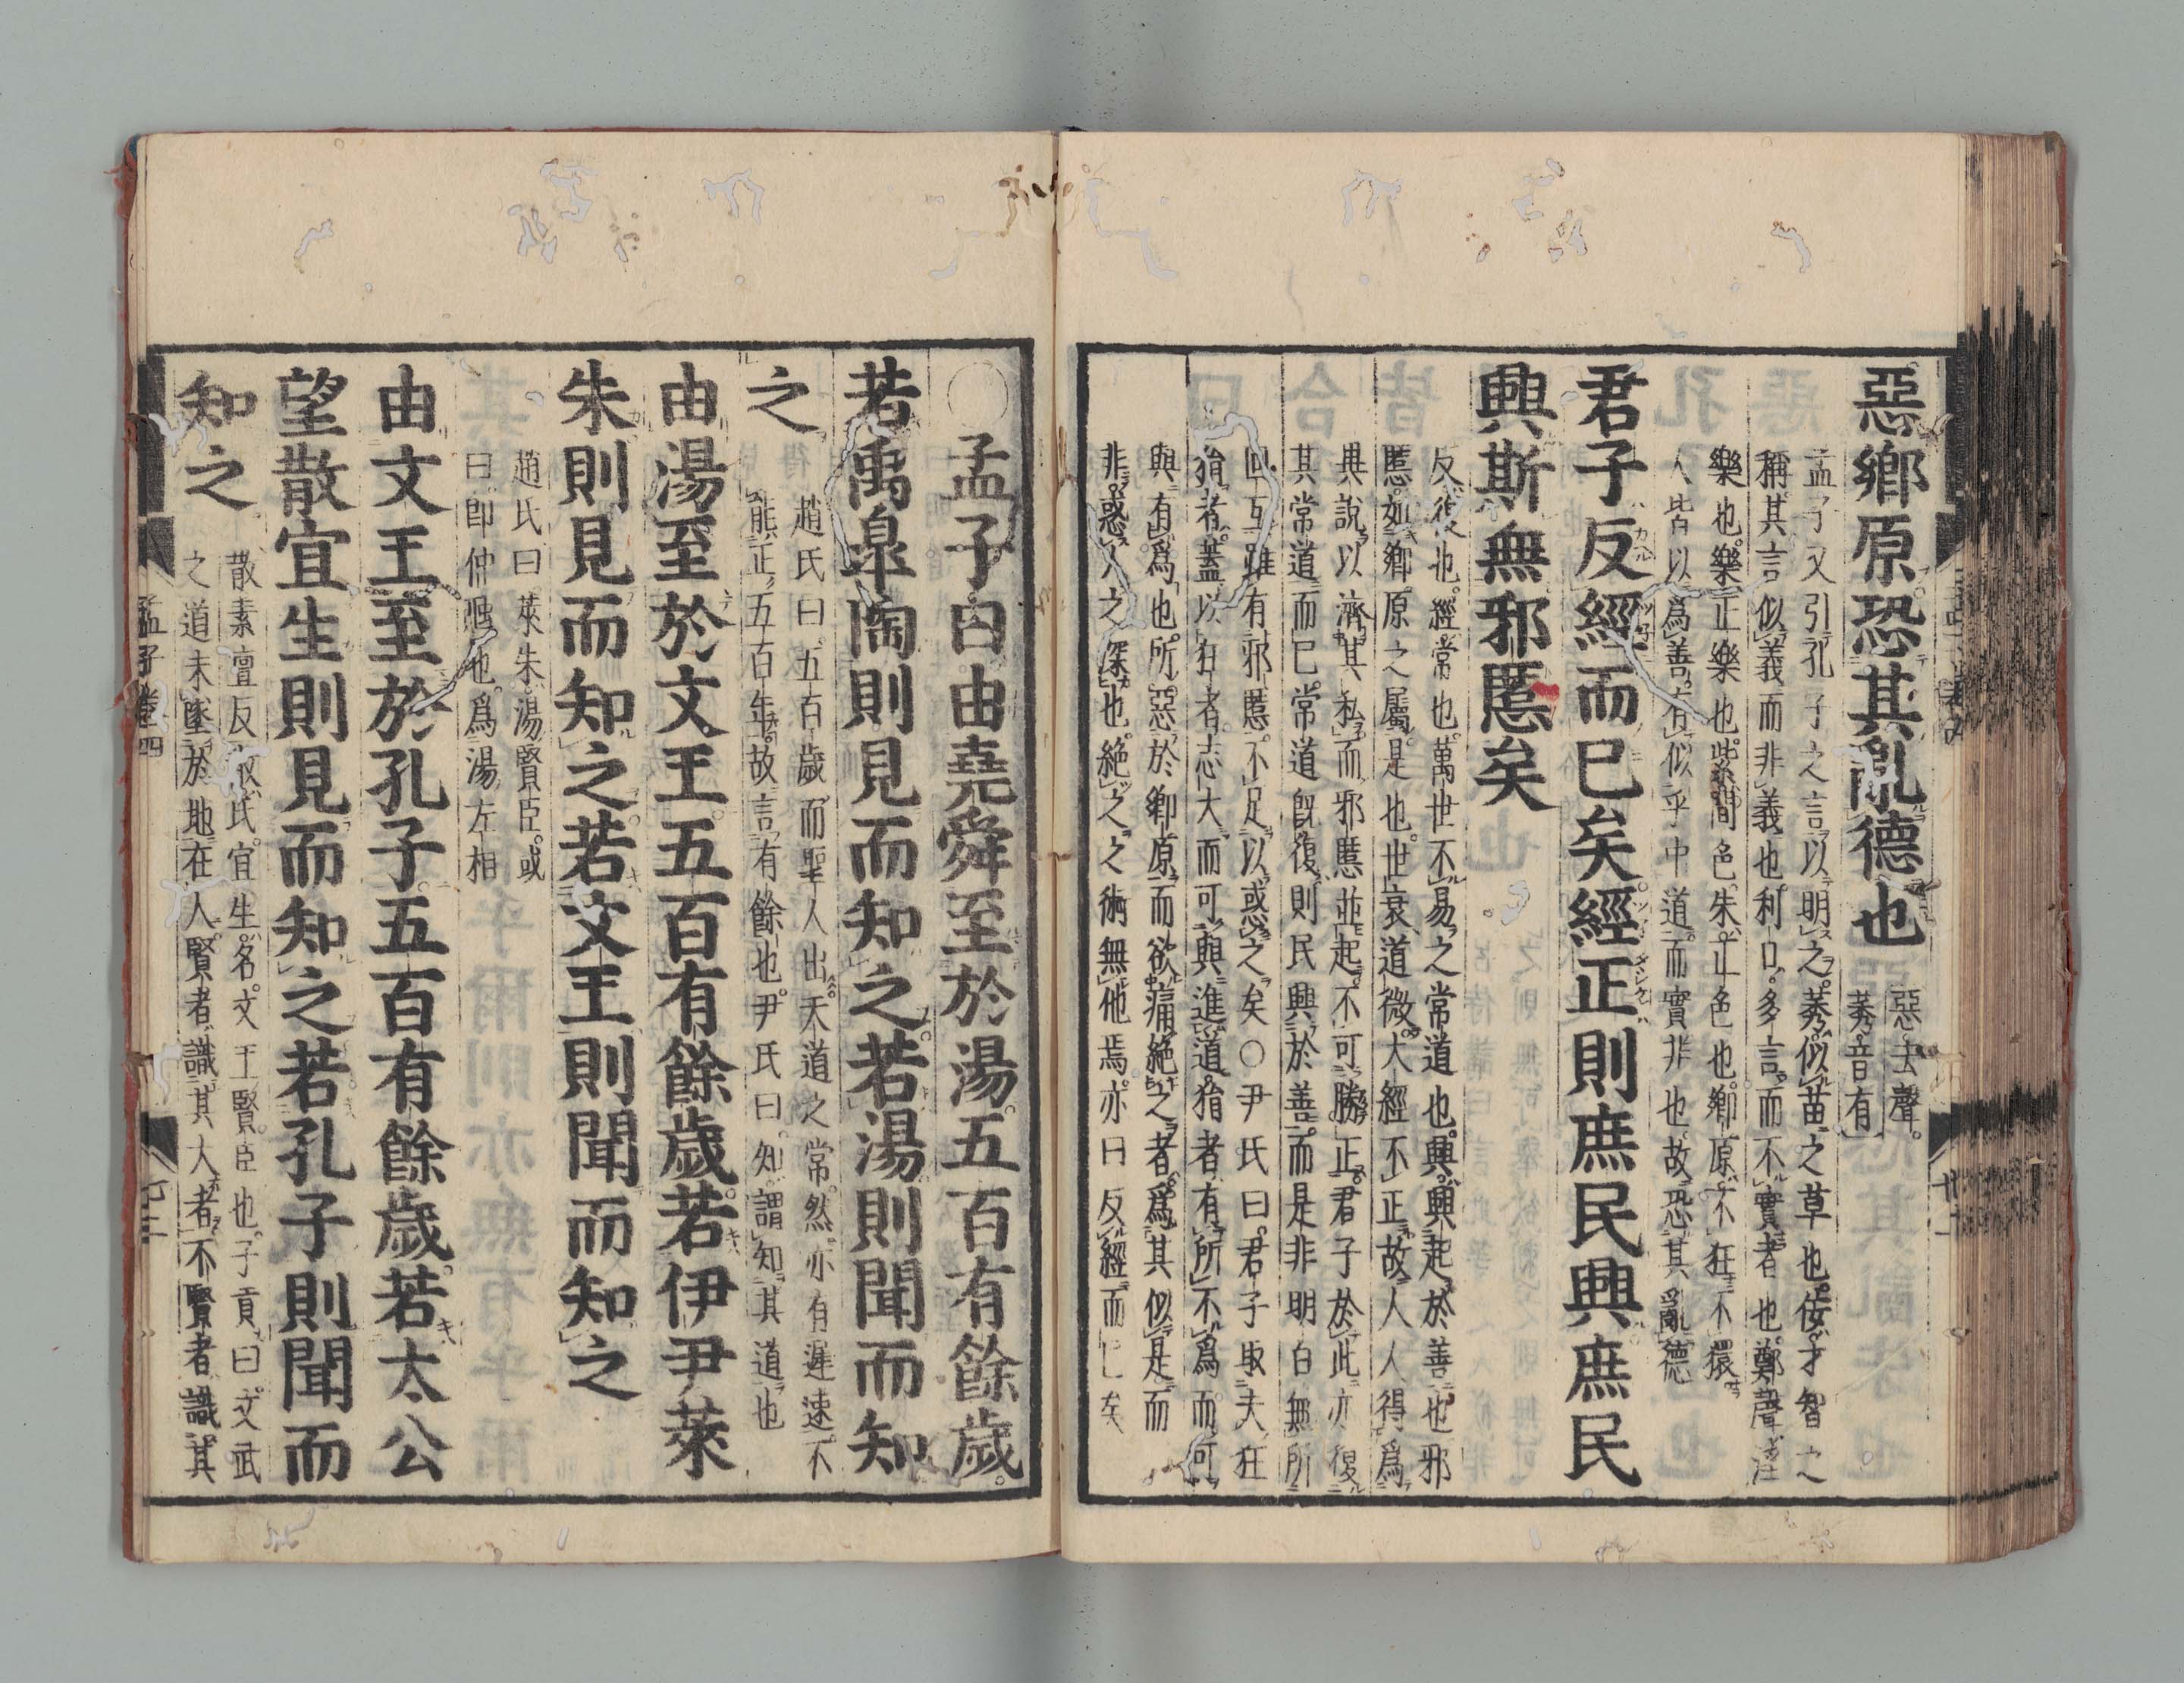 惡鄉原恐其亂德也
惡去聲。
莠音有
孟子又引孔子之言以明之。莠似苗之草也。佞才智之
稱其言似義而非義也。利口。多言而不實者也。鄭聲淫
樂也。樂正樂也。紫間色。朱正色也。鄉原不狂不獧
人皆以爲善。有似乎中道而實非也。故恐其亂德
君子反經而已矣經正則庶民興庶民
興斯無邪慝矣
反復也。經常也。萬世不易之常道也。興興起於善也邪
慝。如鄉原之屬。是也。世衰道微。大經不正。故人人得爲
異說。以濟其私。而邪慝並起。不可勝正。君子於此亦復
其常道而已。常道旣復。則民興於善。而是非明白無所
回互。雖有邪慝。不足以惑之矣〇尹氏曰。君子取夫狂
狷者。蓋以狂者志大而可與進道。狷者有所不爲而可
與有爲也。所惡於鄉原。而欲痛絕之者。爲其似是而
非。惑人之深也。絕之之術無他焉。亦曰反經而已矣
〇孟子曰由堯舜至於湯。五百有餘歲。
若禹皐陶則見而知之若湯則聞而知
之
趙氏曰。五百歲而聖人出。天道之常。然亦有遲速。不
能正五百年。故言有餘也。尹氏曰。知謂知其道也
由湯至於文王五百有餘歲。若伊尹萊
朱則見而知之若文王則聞而知之
趙氏曰。萊朱湯賢臣。或
曰。卽仲虺也。爲湯左相
由文王至於孔子五百有餘歲。若太公
望散宜生則見而知之若孔子則聞而
知之
散素亶反。散氏。宜生。名。文王賢臣也。子貢曰。文武
之道未墜於地。在人。賢者識其大者。不賢者識其
孟子 卷四